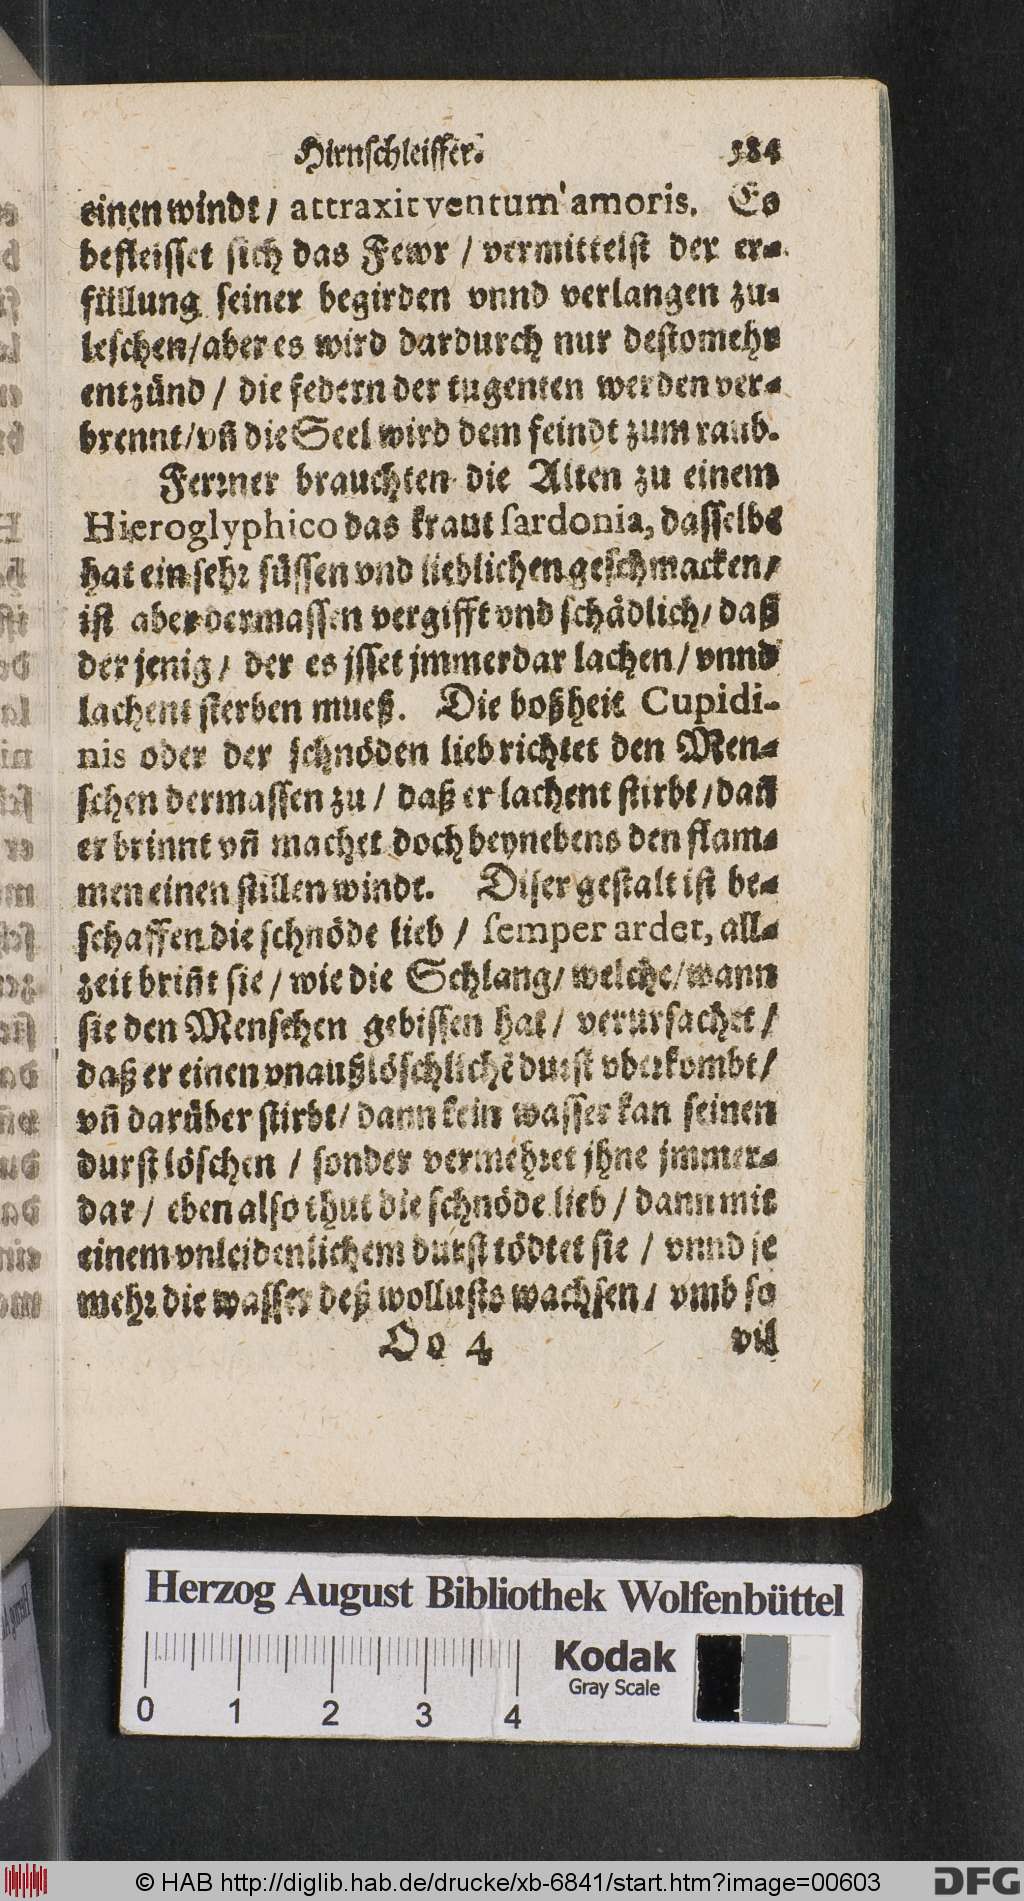 Hirnschleiffer. 584
einen windt / attraxit ventum amoris. Es
befleisset sich das Fewr / vermittelst der er-
füllung seiner begirden vnnd verlangen zu-
leschen/aber es wird dardurch nur destomehr
entzünd / die federn der tugenten werden ver-
brennt/vñ die Seel wird dem feindt zum raub.
Ferꝛner brauchten die Alten zu einem
Hieroglyphico das kraut sardonia, dasselbe
hat ein sehꝛ süssen vnd lieblichen geschmacken/
ist aber dermassen vergifft vnd schädlich/ daß
der jenig/ der es jsset jmmerdar lachen/ vnnd
lachent sterben mueß. Die boßheit Cupidi-
nis oder der schnöden lieb richtet den Men-
schen dermassen zu / daß er lachent stirbt/dañ
er brinnt vñ machet doch beynebens den flam-
men einen stillen windt. Diser gestalt ist be-
schaffen die schnöde lieb / semper ardet, all-
zeit briñt sie / wie die Schlang/ welche/wann
sie den Menschen gebissen hat/ verursachet/
daß er einen vnaußlöschlichē durst vbeꝛkombt/
vñ darüber stirbt/ dann kein wasser kan seinen
durst löschen / sonder vermehꝛet jhne jmmer-
dar/ eben also thut die schnöde lieb / dann mit
einem vnleidenlichem durst tödtet sie / vnnd je
mehꝛ die wasser deß wollusts wachsen/ vmb so
Oo 4 vil
Herzog August Bibliothek Wolfenbüttel
0 1 2 3 4
Kodak
Gray Scale
© HAB http://diglib.hab.de/drucke/xb-6841/start.htm?image=00603
DFG